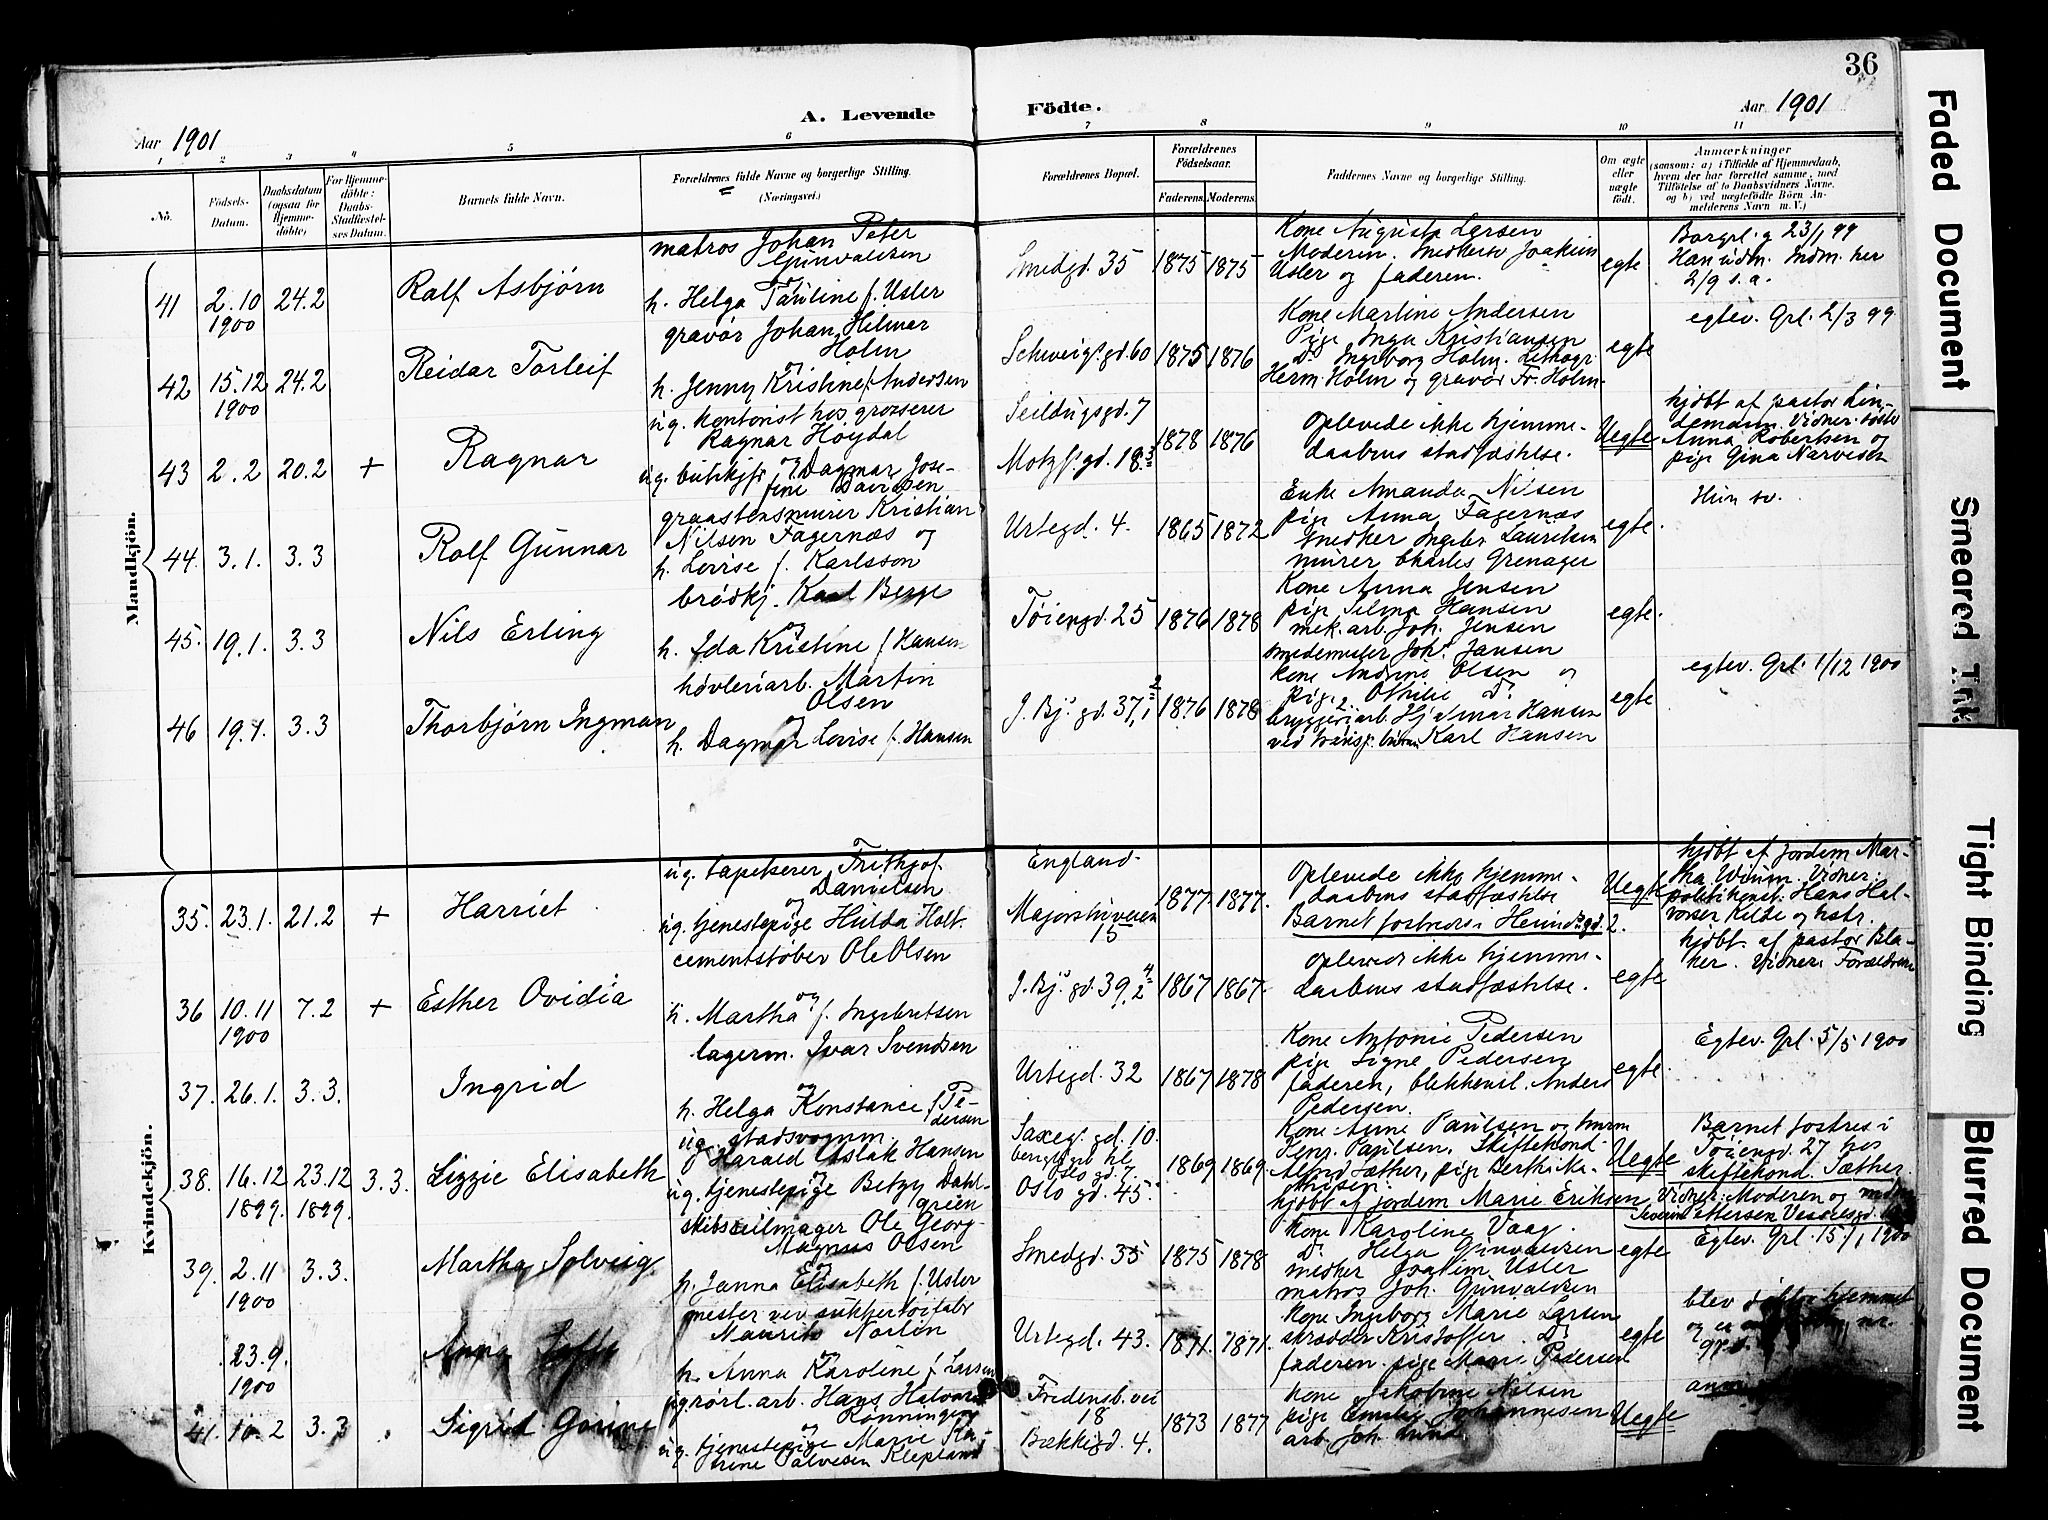 36
A. Levende Födte.
Aar 1901
Aar 1901
1 2 3 4 5 6 7 8 9 10 11
No.
Födsels-Datum.
Daabsdatum (ogsaa for Hjemmedöbte)
For Hjemmedöbte: Daabs-Stadfæstelses Datum.
Barnets fulde Navn.
Forældrenes fulde Navne og borgerlige Stilling. (Næringsvei.)
Forældrenes Bopæl.
Forældrenes Födselsaar.
Faderens. Moderens.
Faddernes Navne og borgerlige Stilling.
Om ægte eller uægte födt.
Anmærkninger
(saasom: a) i Tilfælde af Hjemmedaab, hvem der har forrettet samme, med Tilföielse af to Daabsvidners Navne, og b) ved uægtefödte Börn Anmelderens Navn m. V.)
Mandkjön.
41 2.10 1900 24.2 Ralf Asbjørn
matros Johan Peter
Grünvaldsen
og
h. Helga Pauline f. Usler
Smedgd. 35 1875 1875
Kone Augusta Larsen
Moderen. Snedker Joakim
Usler og faderen.
egte
Borgrl. g 23/1 99
Han udm. Indm. her
2/9 s.a.
42 15.12 1900 24.2 Reidar Torleif
gravør Johan Helmer
Holm
og
h. Jenny Kristine f. Andersen
Schweigs.gd. 60 1875 1876
Kone Martine Andersen
Pige Inga Kristiansen
Do Ingeborg Holm. Lithogr.
Herm. Holm og gravør Fr. Holm.
egte
egtev. Grl. 2/3 99
43 2.2 20.2 + Ragnar
ug. kontorist hos grosserer
Ragnar Høydal
og
ug. butikjfr. Dagmar Josefine
Seildugsgd. 7
Motzf. gd. 18
1878 1876
Oplevede ikke hjemmedaabens stadfæstelse.
Uegte
hjdbt af pastor Lindeman. Vidner:
Anna Robertsen og
pige Gina Narvesen
44. 3.1. 3.3 Rolf Gunnar
graastensmurer Kristian
Nilsen Fagernæs og
h. Lovise f. Karlsson
Urtegd. 4. 1865 1872
Enke Amanda Nilsen
pige Anna Fagernæs
snedker Lauritsen
murer Charles Grenager
egte.
Hun sv.
45. 19.1. 3.3 Nils Erling
brødkj. Karl Berge
og
h. Ida Kristine f. Hansen
Tøiengd. 25 1876 1878
Kone Anna Jensen
pige Selma Hansen
mek. arb. Joh. Jensen
smedemester Joh. Jansen
egte.
46 19.1. 3.3 Thorbjørn Ingman
høvleriarb. Martin
Olsen
og
h. Dagmar Lovise f. Hansen
J. Bj. gd. 37 1876 1878
Kone Andrine Olsen og
pige Othilie Do
bryggeriarb. Hjalmar Hansen
Karl Hansen
egte
egtev. Grl. 1/12 1900
Kvindekjön.
35. 23.1. 21.2 + Harriet
ug. tapetserer Frithjof
Danielsen
og
ug. tjenestepige Hulda Holt
England.
Majorstuveien
15
1877. 1877.
Oplevede ikke hjemmedaabens stadfæstelse
Barnet fostredes i
Uegte
hjdbt af jordem. Martha
Vidner:
politikonst. Hans Halvorsen Kilde og hstr.
36 10.11 1900 7.2 + Esther Ovidia
cementstøber Ole Olsen
og
h. Martha f. Ingebretsen
J. Bj. gd. 39 1867 1867.
oplevede ikke hjemmedaabens stadfæstelse.
egte
hjdbt. af pastor Blaker. Vidner: Forældrene
37. 26.1. 3.3. Ingrid
lagerm. Ivar Svendsen
og
h. Helga Konstance f. Pedersen
Urtegd. 32 1867 1878
Kone Antonie Pedersen
pige Signe Pedersen
faderen, blikkensl. Anders
Pedersen.
egte.
Egtev. Grl. 5/5 1900
38. 16.12 1899. 23.12 1899. 3.3. Lizzie Elisabeth
ug. stadsvognm.
Harald Aslak Hansen
og
ug. tjenestepige Betzy Dahlgreen
Saxeg. gd. 10.
Oslo gd. 7
Oslo gd. 45.
1869 1869
Kone Anne Paulsen og
Paulsen. Skiftekond.
Sæther, pige
hjdbt af jordem Marie Eriksen
Uegte
Barnet fostres i
Tøiengd. 27 hos
skiftekond. Sæther.
Vidner: Moderen og
39. 2.11 1900 3.3. Martha Solveig
skibsseilmager Ole Georg
Magnus Olsen
og
h. Janna Elisabeth f. Usler
Smedgd. 35 1875 1878
Kone Karoline Vaag.
Do Helga Grünvaldsen
snedker Joakim Usler
matros Joh. Grünvaldsen
egte
Egtev. Grl. 15/1 1900
23.9. 1900 Anna
mester ved sukkertøifabr.
Maurits Norlin
og
h. Anna Karoline f. Larsen
Urtegd. 43. 1871. 1871.
Kone Ingeborg Marie Larsen
skrædder Kristoffer Do
faderen. pige Marie Pedersen
egte
blev døbt hjemmet
og er
41. 10.2 3.3 Sigrid
ug. rørl. arb. Hans Halvard
Rønningen
og
ug. tjenestepige Marie Katrine Salvesen Klepland
Fredensb. vei
18
Bækkegd. 4.
1873 1877
Kone Jakobine Nilsen
pige Emilie Johannesen
arb. Joh. Lund
Uegte
Faded Document
Smeared Ink
Tight Binding
Blurred Document